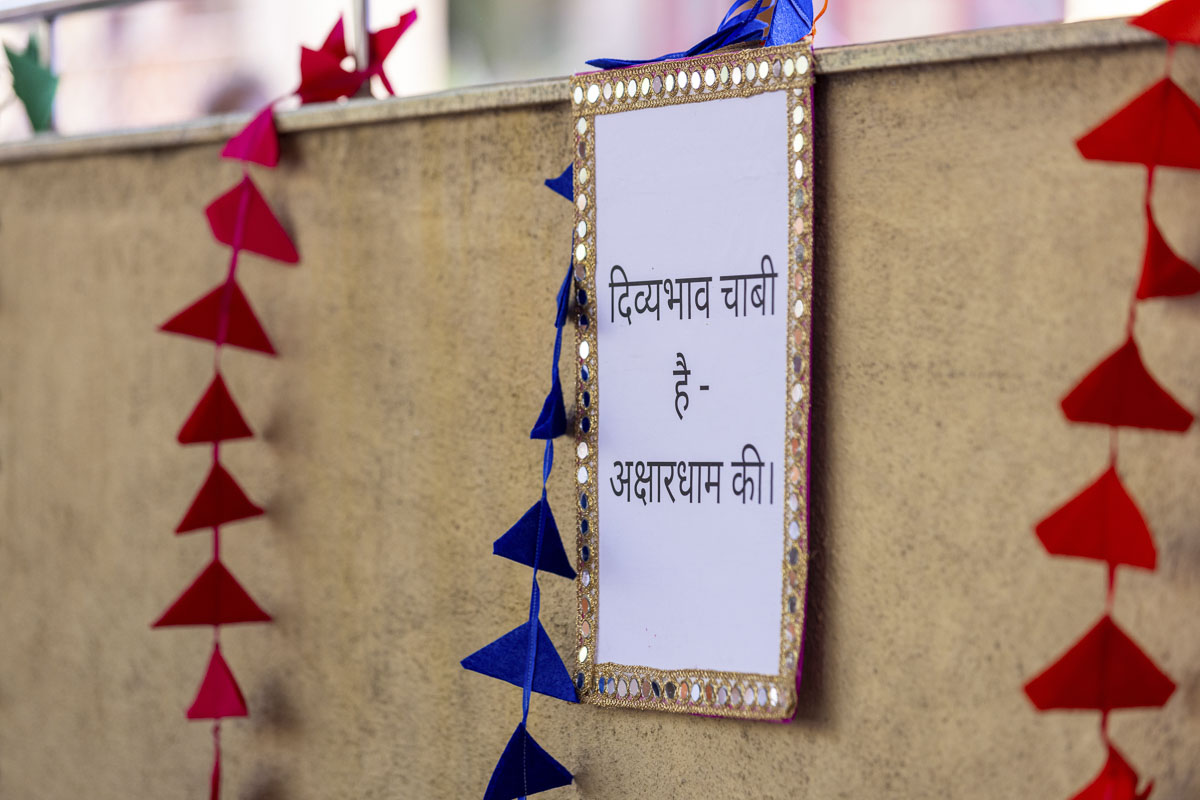 दिव्यभाव चाबी
है -
अक्षारधाम की।